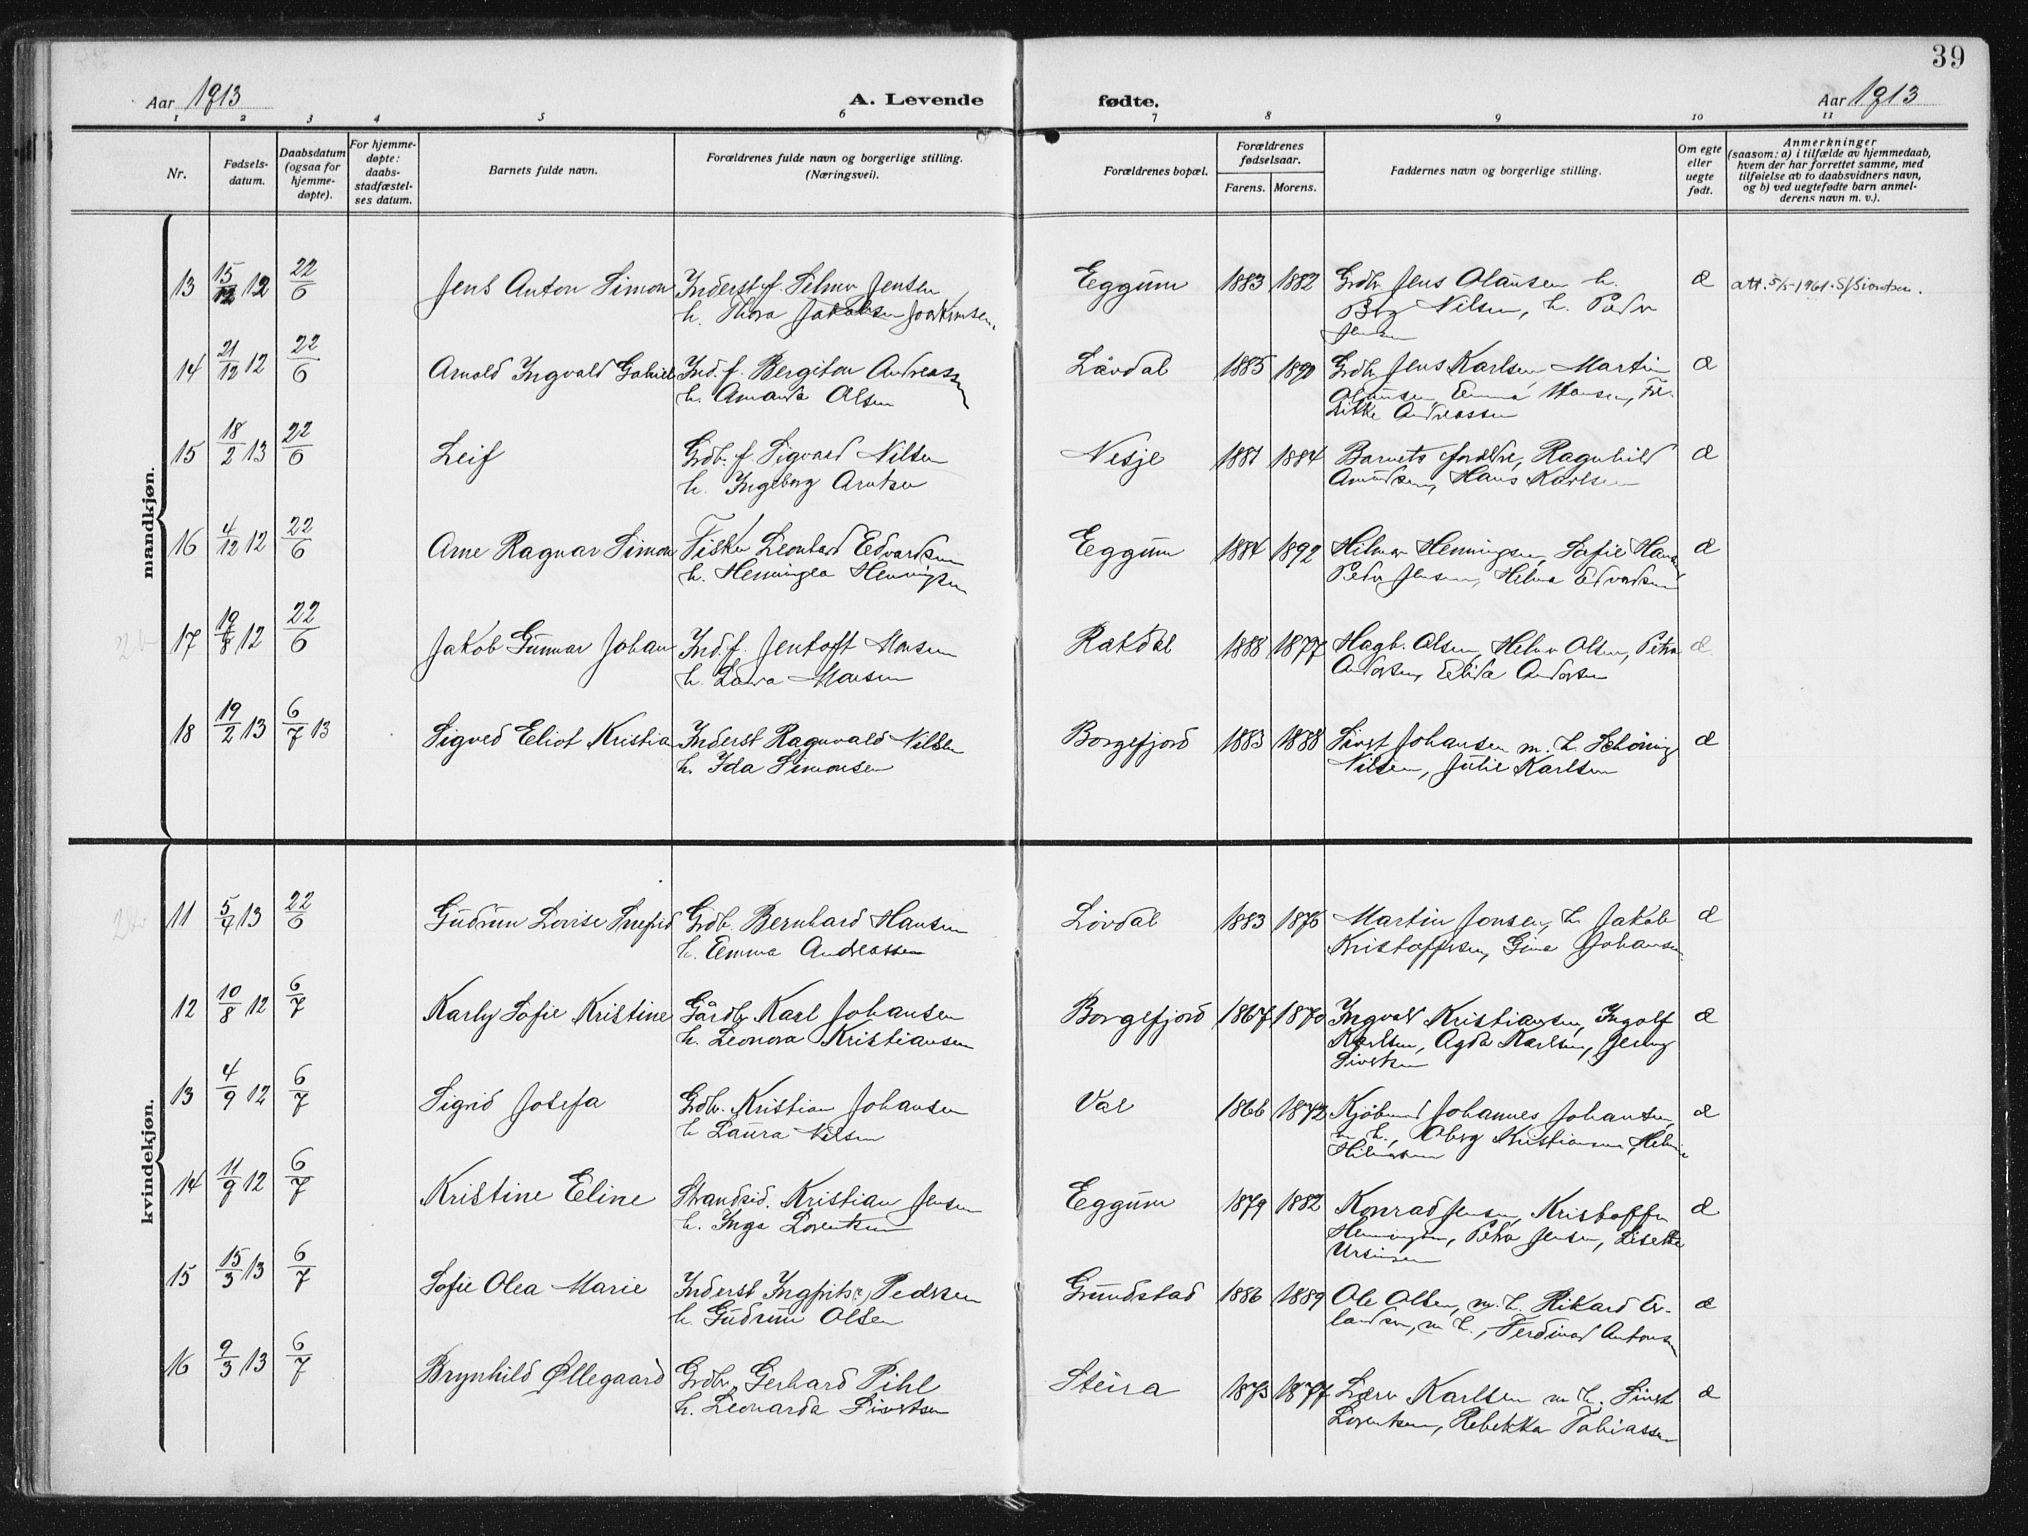 39
Aar 1913
A. Levende
fødte.
Aar 1913
1 2 3 4 5 6 7 8 9 10 11
Nr.
Fødsels-
datum.
Daabsdatum
(ogsaa for
hjemme-
døpte).
For hjemme-
døpte:
daabs-
stadfæstel-
ses datum.
Barnets fulde navn.
Forældrenes fulde navn og borgerlige stilling.
(Næringsvei).
Forældrenes bopæl.
Forældrenes
fødselsaar.
Farens. Morens.
Faddernes navn og borgerlige stilling.
Om egte
eller
uegte
født.
Anmerkninger
(saasom: a) i tilfælde av hjemmedaab,
hvem der har forrettet samme, med
tilføielse av to daabsvidners navn,
og b) ved uegtefødte barn anmel-
derens navn m. v.).
mandkjøn.
13 15/12 12 22/6 Jens Anton Simon Inderst f. Selmer Jensen Eggum 1883 1882 Grdbr Jens Olausen h. æ att. 5/5-1961
h. Thora Jakobsen Joakimsen Nilsen, h. Peder
Jensen
14 21/12 12 22/6 Arnold Ingvald Gabriel Ind. f. Bergiton Andreassen Løvdal 1885 1890 Grdb Jens Karlsen Martin æ
h. Amanda Olsen Olausen, Emma Hansen,
Andreassen
15 18/2 13 22/6 Leif Grdb. f. Sigvard Nilsen Nesje 1881 1884 Barnets forældre, Ragnhild æ
h. Ingeborg Arntsen Amundsen, Hans Karlsen
16 4/12 12 22/6 Arne Ragnar Simon Fisker Leonhard Edvardsen Eggum 1884 1892 Hilmar Henningsen, Sofie Hansen æ
h. Henningea Henningsen Peder Jensen, Helma Edvardsen
17 19/8 12 22/6 Jakob Gunnar Johan Ind. f. Jentoft Monsen Rakdal 1888 1877 Hagb. Olsen, Helmer Olsen, Petra æ
h. Laura Monsen Andersen, Elida Andersen
18 19/2 13 6/7 13 Sigved Eliot Kristian Inderst Ragnvald Nilsen Borgefjord 1883 1888 Sivert Johansen m. h. Schøning æ
h. Ida Simonsen Nilsen, Julie Karlsen
kvindekjøn.
11 5/4 13 22/6 Gudrun Lovise Snefrid Grdb. Bernhard Hansen Løvdal 1883 1876 Martin Jonsen, h. Jakob æ
h. Emma Andreassen Kristoffersen, Gina Johansen
12 10/8 12 6/7 Karly Sofie Kristine Gårdb. Karl Johansen Borgefjord 1867 1870 Ingvald Kristiansen, Ingolf æ
h. Leonora Kristiansen Karlsen, Agda Karlsen, Jenny
Sivertsen
13 4/9 12 6/7 Sigrid Josefa Grdb. Kristian Johansen Val 1866 1872 Kjøbmd Johannes Johansen æ
h Laura Nilsen m h., Oberg Kristiansen,
14 11/9 12 6/7 Kristine Eline Strandsid. Kristian Jensen Eggum 1879 1882 Konrad Jensen, Kristoffer æ
h. Inga Lorentsen Henningsen, Petra Jensen, Lisette
Ursinsen
15 15/3 13 6/7 Sofie Olea Marie Inderst Ingfrits Pedersen Grundstad 1886 1889 Ole Olsen, m. h. Rikard Er- æ
h. Gudrun Olsen landsen, m h., Ferdinad Antonsen
16 9/3 13 6/7 Brynhild Øllegaard Grdbr. Gerhard Pihl Steira 1873 1877 Lærer Karlsen m h. Sivert æ
h. Leonarda Sivertsen Lorentsen, Rebekka Tobiassen